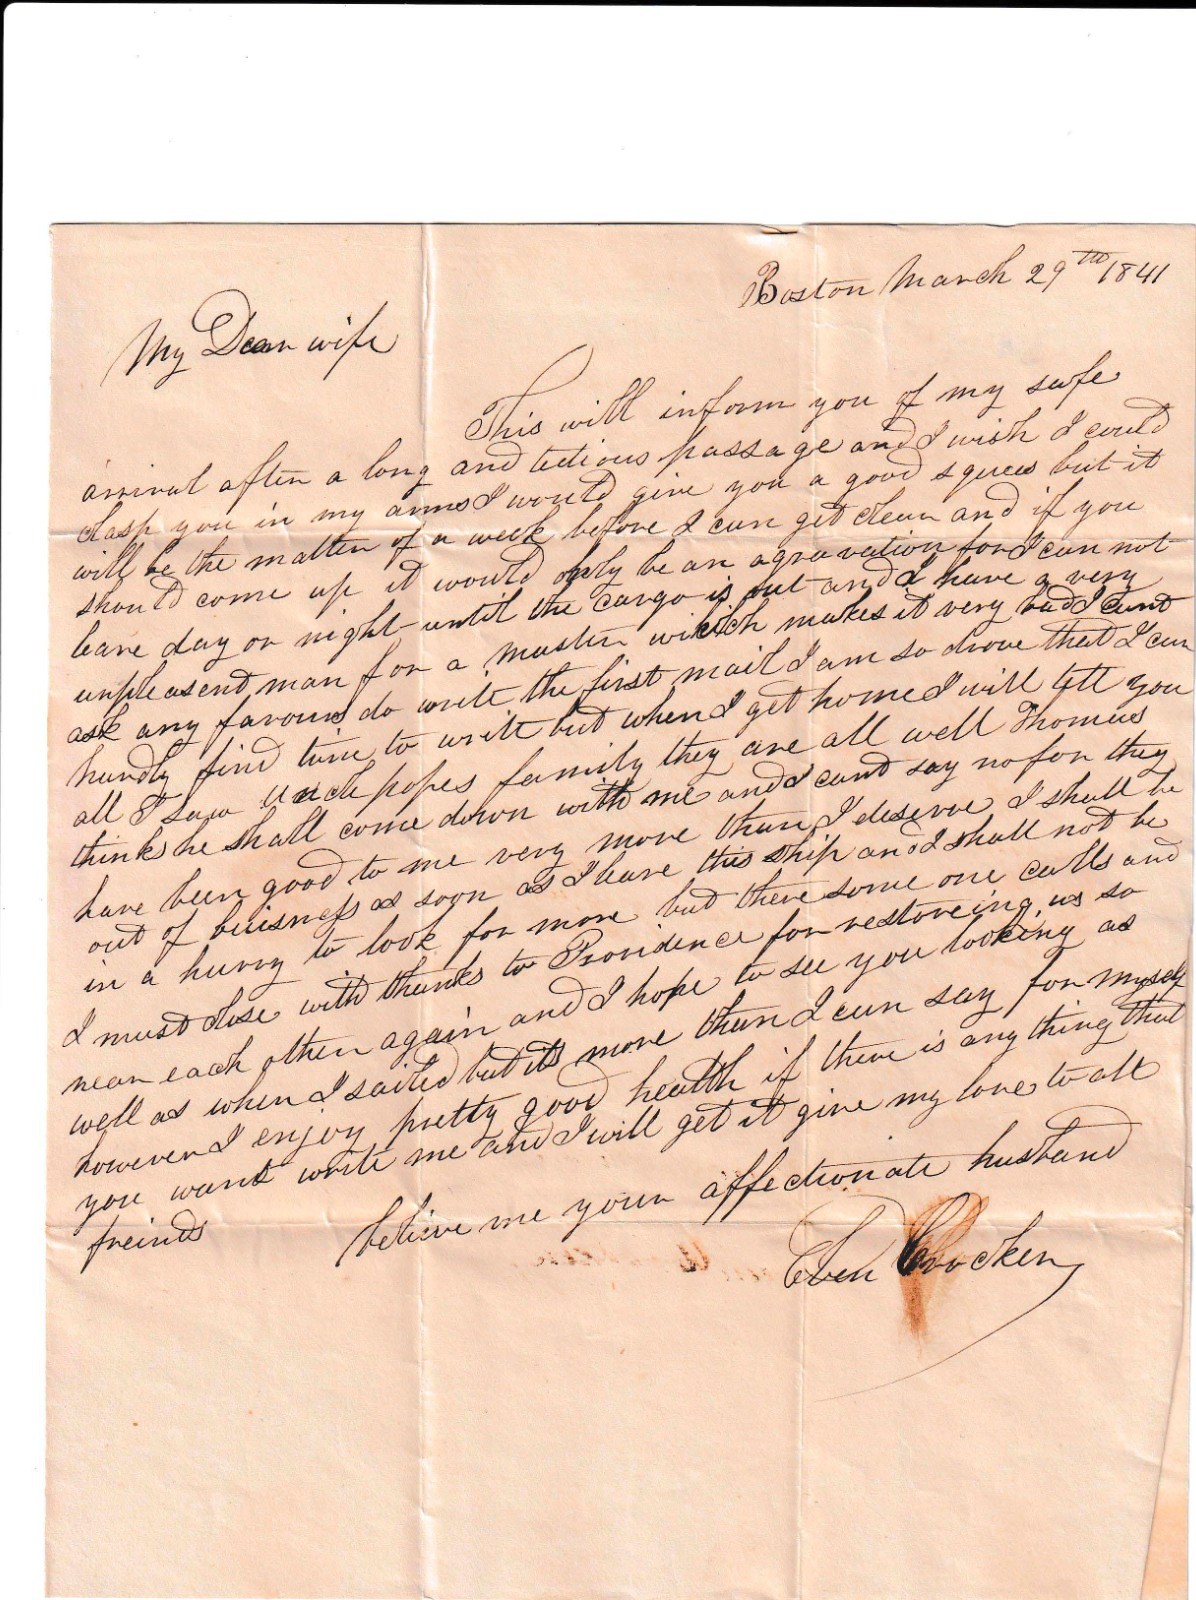 Boston March 29th 1841
My Dear wife
This will inform you of my safe
arrival after a long and tedious passage and I wish I could
clasp you in my arms I would give you a good squees but it
will be the matter of a week before I can get clear and if you
should come up it would only be an agravation for I can not
leave day or night until the cargo is out and I have a very
unpleasent man for a master which makes it very bad I cant
ask any favours do write the first mail I am so drove that I can
hardly find time to write but when I get home I will tell you
all I saw Uncle popes family they are all well Thomas
thinks he shall come down with me and I cant say no for they
have been good to me very more than I deserve I shall be
out of buisness as soon as I leave this ship and I shall not be
in a hurry to look for more but there some one calls and
I must close with thanks to Providence for restoreing us so
near each other again and I hope to see you looking as
well as when I sailed but its more than I can say for myself
however I enjoy pretty good health if there is any thing that
you want write me and I will get it give my love to all
freinds believe me your affectionate husband
Eben Crocker